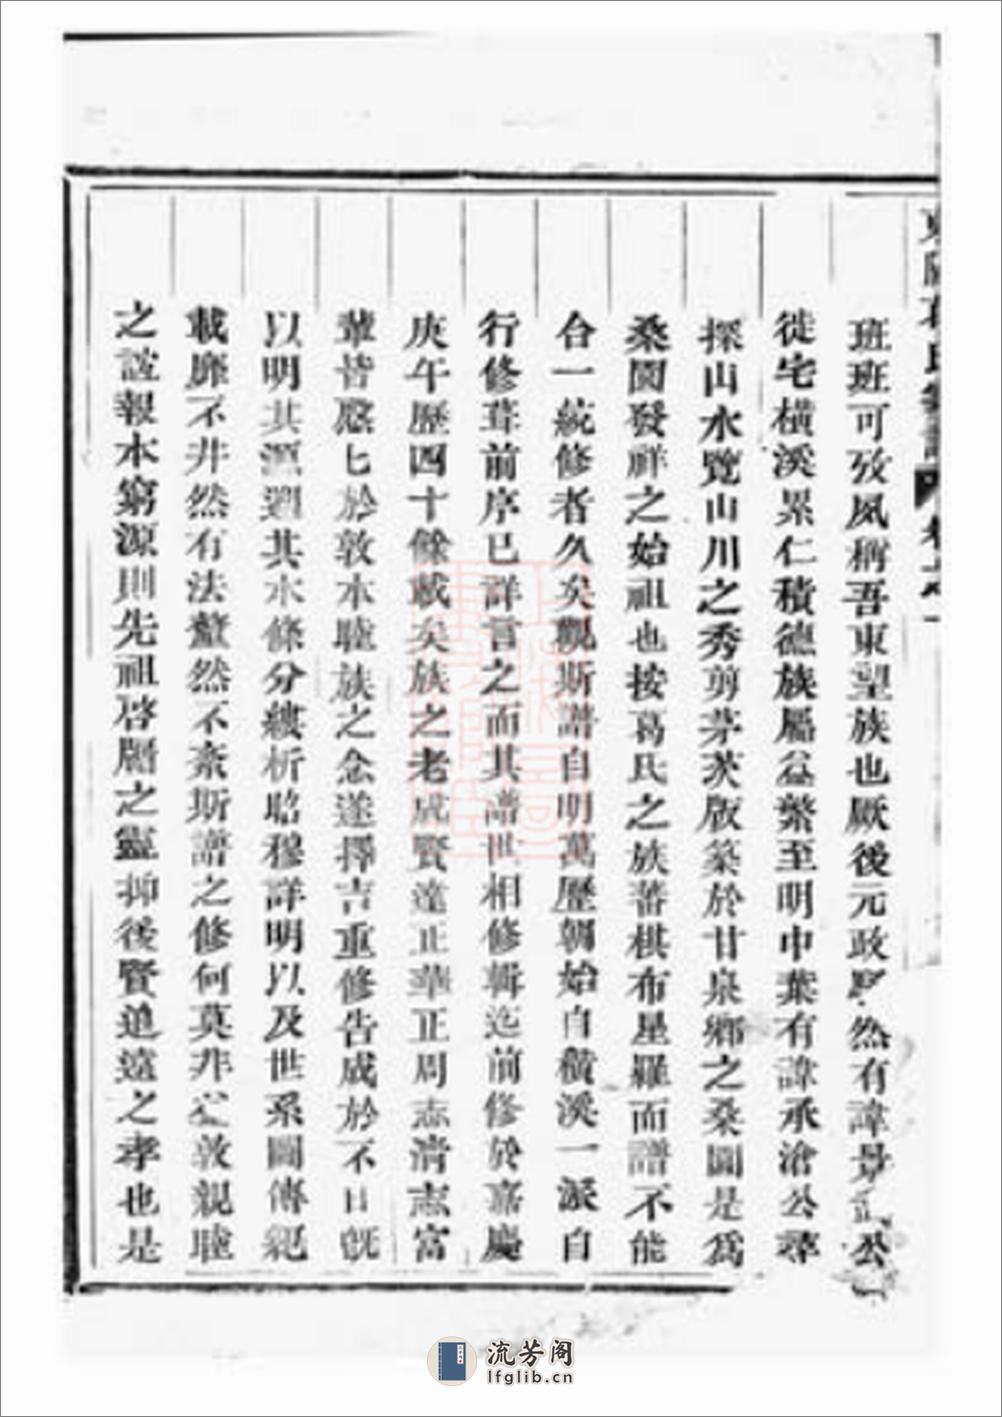 班班可攷夙稱吾東望族也厥後元政然有諱景公
徙宅橫溪累仁積德族屬益繁至明中葉有諱承滄公尋
探山水覽山川之秀剪茅茨版築於甘泉鄉之桑園是爲
桑園發祥之始祖也按葛氏之族蕃棋布星羅而譜不能
合一統修者久矣觀斯譜自明萬歷朝始自橫溪一派自
行修葺前序已詳言之而其譜世相修輯迄前修於嘉慶
庚午歷四十餘載矣族之老成賢達正華正周志淸志富
輩皆慇七於敦本睦族之念遂擇吉重修告成於不日旣
以明其源遡其水條分縷析昭穆詳明以及世系圖傳紀
載靡不井然有法釐然不紊斯譜之修何莫非敦親睦
之誼報本窮源則先祖啓曆之靈抑後賢追遠之孝也是
氏
流芳阁
lfglib.cn